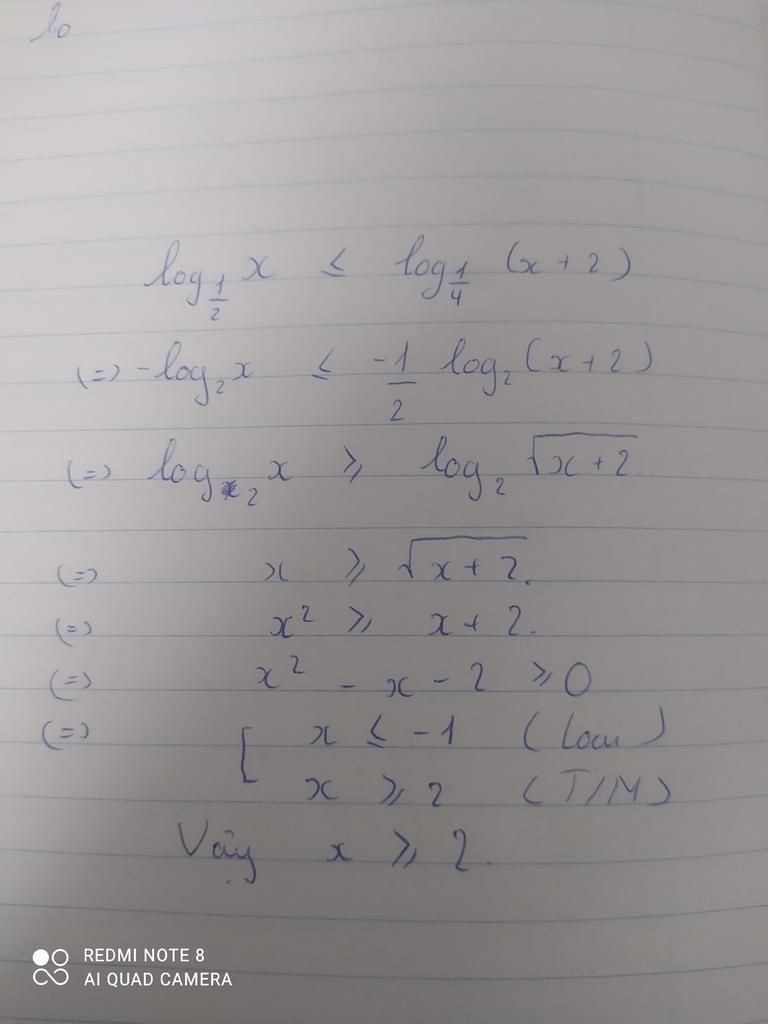 lo
log_{1/2} x ≤ log_{1/4} (x + 2)
(=) -log_2 x ≤ \frac{-1}{2} log_2 (x + 2)
(=) log_2 x ⩾ log_2 √(x + 2)
(=) x ⩾ √(x + 2).
(=) x² ⩾ x + 2.
(=) x² - x - 2 ⩾ 0
(=) [ x ≤ -1 (loại)
x ⩾ 2 (T/M)
Vậy x ⩾ 2.
REDMI NOTE 8
AI QUAD CAMERA